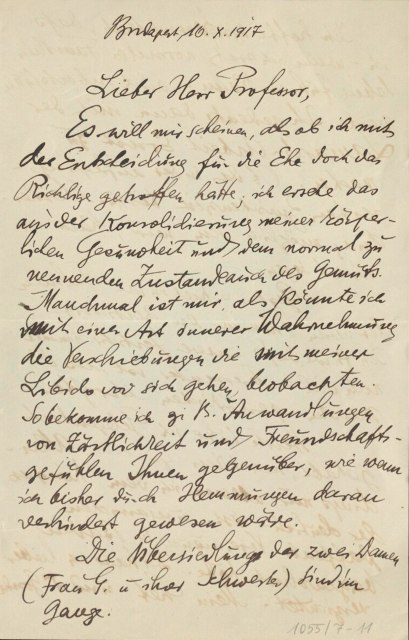 Budapest, 10.X.1917
Lieber Herr Professor,
Es will mir scheinen, als ob ich mit
der Entscheidung für die Ehe doch das
Richtige getroffen hätte; ich ersehe das
aus der Konsolidierung meiner körper-
lichen Gesundheit und dem normal zu
nennenden Zustande auch des Gemüts.
Manchmal ist mir, als könnte ich
mit einer Art innerer Wahrnehmung
die Verschiebungen die mit meiner
Libido vor sich gehen, beobachten.
So bekomme ich z. B. Anwandlungen
von Zärtlichkeit und Freundschafts-
gefühlen Ihnen gegenüber, wie wenn
ich bisher durch Hemmungen daran
verhindert gewesen wäre.
Die Übersiedlung der zwei Damen
(Frau G. u ihrer Schwester) sind im
Gange.
1055/7-11